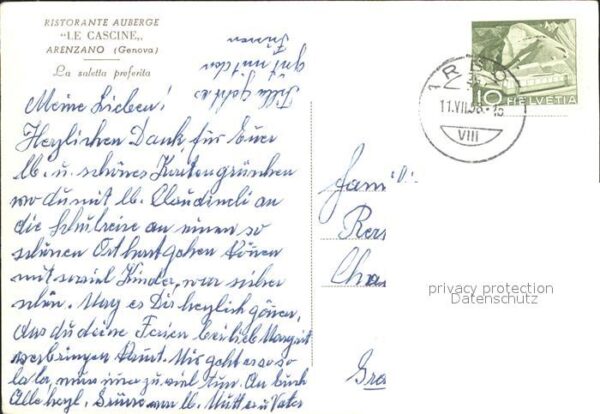 RISTORANTE AUBERGE
"LE CASCINE„
ARENZANO (Genova)
La saletta preferita
Meine Lieben!
Herzlichen Dank für Euer
lb. u. schönes Kartengrüsschen
wo du mit lb. Claudineli an
die Schulreise an einen so
schönen Ort hast gehen können
mit soviel Kinder, war sicher
schön. Mag es Dir herzlich gönnen,
das du deine Ferien bei lieb Margrit
verbringen kannst. Mir geht es so so
la la, nur immer zu viel tun. An Euch
Alle herzl. Grüsse von lb. Mutter u Vater
geht es
gut mit den
10
HELVETIA
11.VII.58
VIII
Fami
Rers
Cha
Gre
privacy protection
Datenschutz